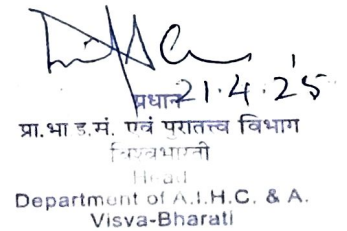 प्रधान 21.4.25
प्रा.भा इ.सं. एवं पुरातत्त्व विभाग
विश्वभारती
Head
Department of A.I.H.C. & A.
Visva-Bharati